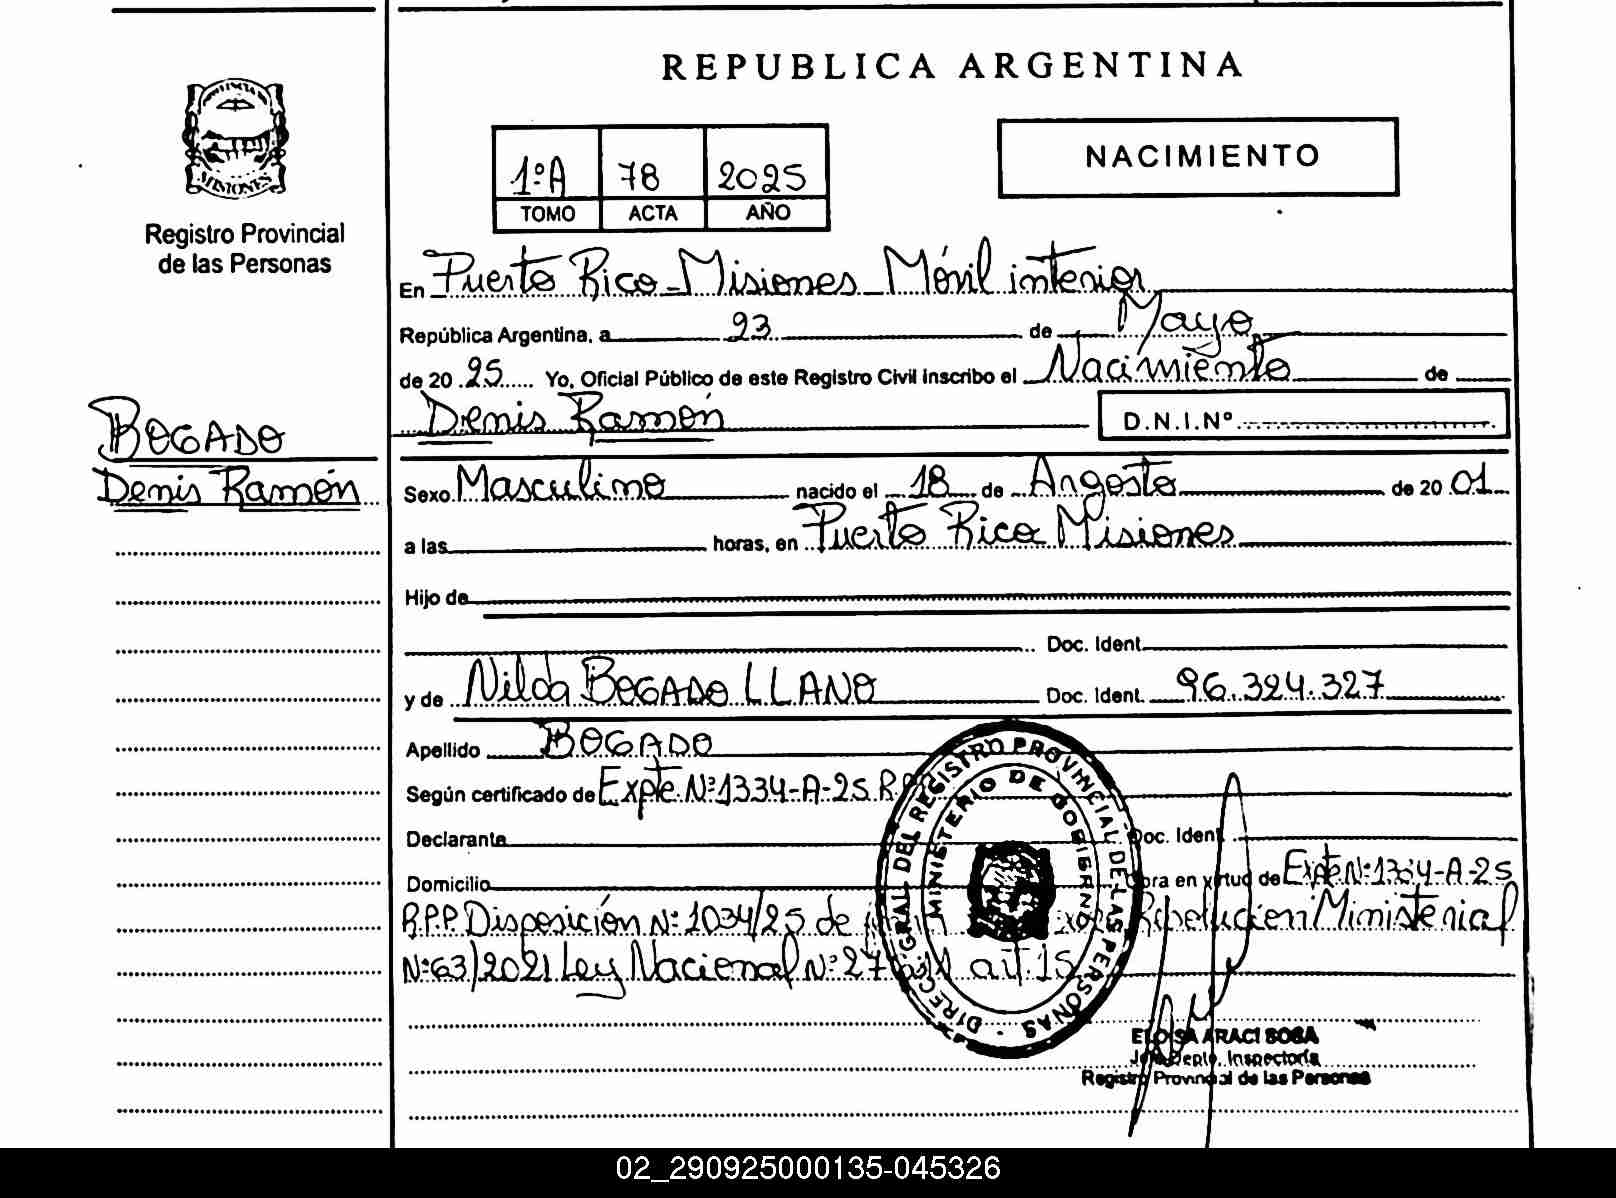 REPUBLICA ARGENTINA
PROVINCIA DE
MISIONES
Registro Provincial
de las Personas
1ºA 78 2025
TOMO ACTA AÑO
NACIMIENTO
En Puerto Rico - Misiones Móvil interior
República Argentina, a 23 de Mayo
de 20 25 Yo, Oficial Público de este Registro Civil inscribo el Nacimiento de
Denis Ramón D.N.I.Nº
BOGADO
Denis Ramón
Sexo Masculino nacido el 18 de Angosto de 20 01
a las horas, en Puerto Rico Misiones
Hijo de
Doc. Ident.
y de Nilda BOGADO LLANO Doc. Ident. 96.324.327
Apellido BOGADO
Según certificado de Expte Nº1334-A-25 R.
Declarante Doc. Ident.
Domicilio Obra en virtud de Expte Nº1334-A-25
R.P.P. Disposición Nº 1034/25 de Resolución Ministerial
Nº63/2021 Ley Nacional Nº 27 art. 15
DIREC. GRAL. DEL REGISTRO PROVINCIAL DE LAS PERSONAS
MINISTERIO DE GOBIERNO
ELOISA ARACI SOSA
Jefa Depto. Inspectoría
Registro Provincial de las Personas
02_290925000135-045326